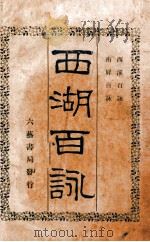 西溪百詠
南屏百詠
西湖百詠
六藝書局發行